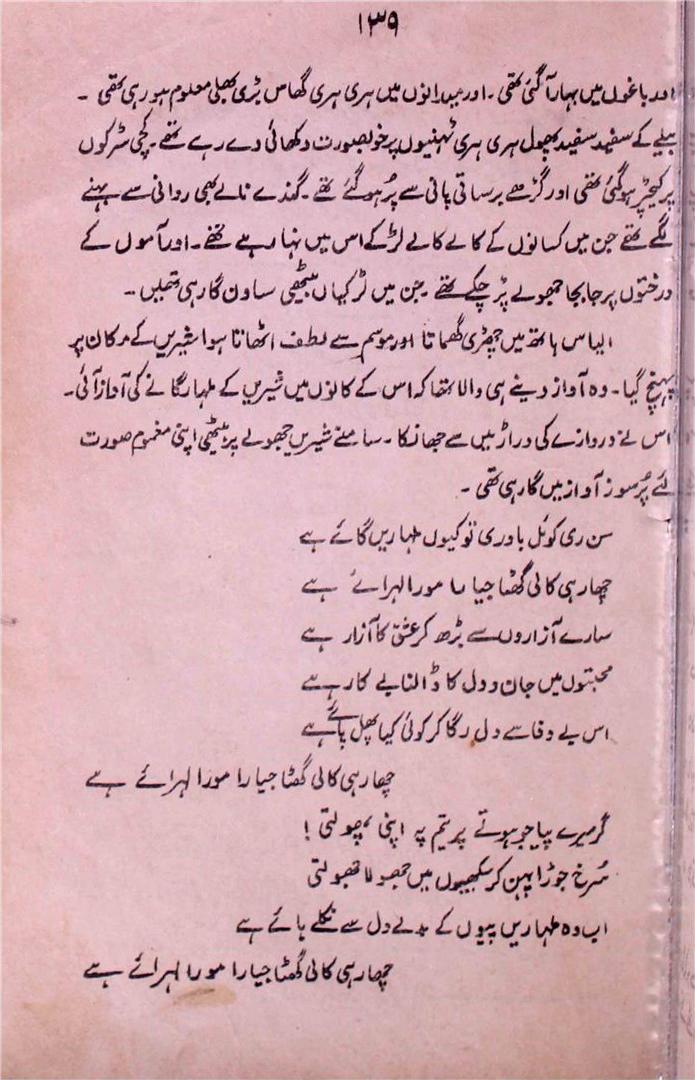 ۱۳۹
اور باغوں میں بہار آ گئی تھی ۔ اور میدانوں میں ہری ہری گھاس بڑی بھلی معلوم ہو رہی تھی ۔
بیلے کے سفید سفید پھول ہری ہری ٹہنیوں پر خوبصورت دکھائی دے رہے تھے ۔ کچی سڑکوں
پر کیچڑ ہو گئی تھی اور گڑھے برساتی پانی سے پُر ہو گئے تھے ۔ گندے نالے بھی روانی سے بہنے
لگے تھے جن میں کسانوں کے کالے کالے لڑکے اس میں نہا رہے تھے ۔ اور آموں کے
درختوں پر جابجا جھولے پڑ چکے تھے ۔ جن میں لڑکیاں بیٹھی ساون گا رہی تھیں ۔
الیاس ہاتھ میں چھڑی گھماتا اور موسم سے لطف اٹھاتا ہوا شیریں کے مکان پر
پہنچ گیا ۔ وہ آواز دینے ہی والا تھا کہ اس کے کانوں میں شیریں کے ملہار گانے کی آواز آئی ۔
اس نے دروازے کی دراڑ میں سے جھانکا ۔ سامنے شیریں جھولے پر بیٹھی اپنی مغموم صورت
لئے پُر سوز آواز میں گا رہی تھی ۔
سن ری کوئل باوری تو کیوں ملہاریں گائے ہے
چھا رہی کالی گھٹا جیا را مورا لہرائے ہے
سارے آزاروں سے بڑھ کر عشق کا آزار ہے
محبتوں میں جان و دل کا ڈالنا بے کار ہے
اس بے وفا سے دل لگا کر کوئی کیا پھل پائے ہے
چھا رہی کالی گھٹا جیا را مورا لہرائے ہے
گر میرے پیا جو ہوتے پریتم پہ اپنی پھولتی !
سُرخ جوڑا پہن کر سکھیوں میں جھولا جھولتی
اب وہ ملہاریں پیوں کے بدلے دل سے نکلے ہائے ہے
چھا رہی کالی گھٹا جیا را مورا لہرائے ہے